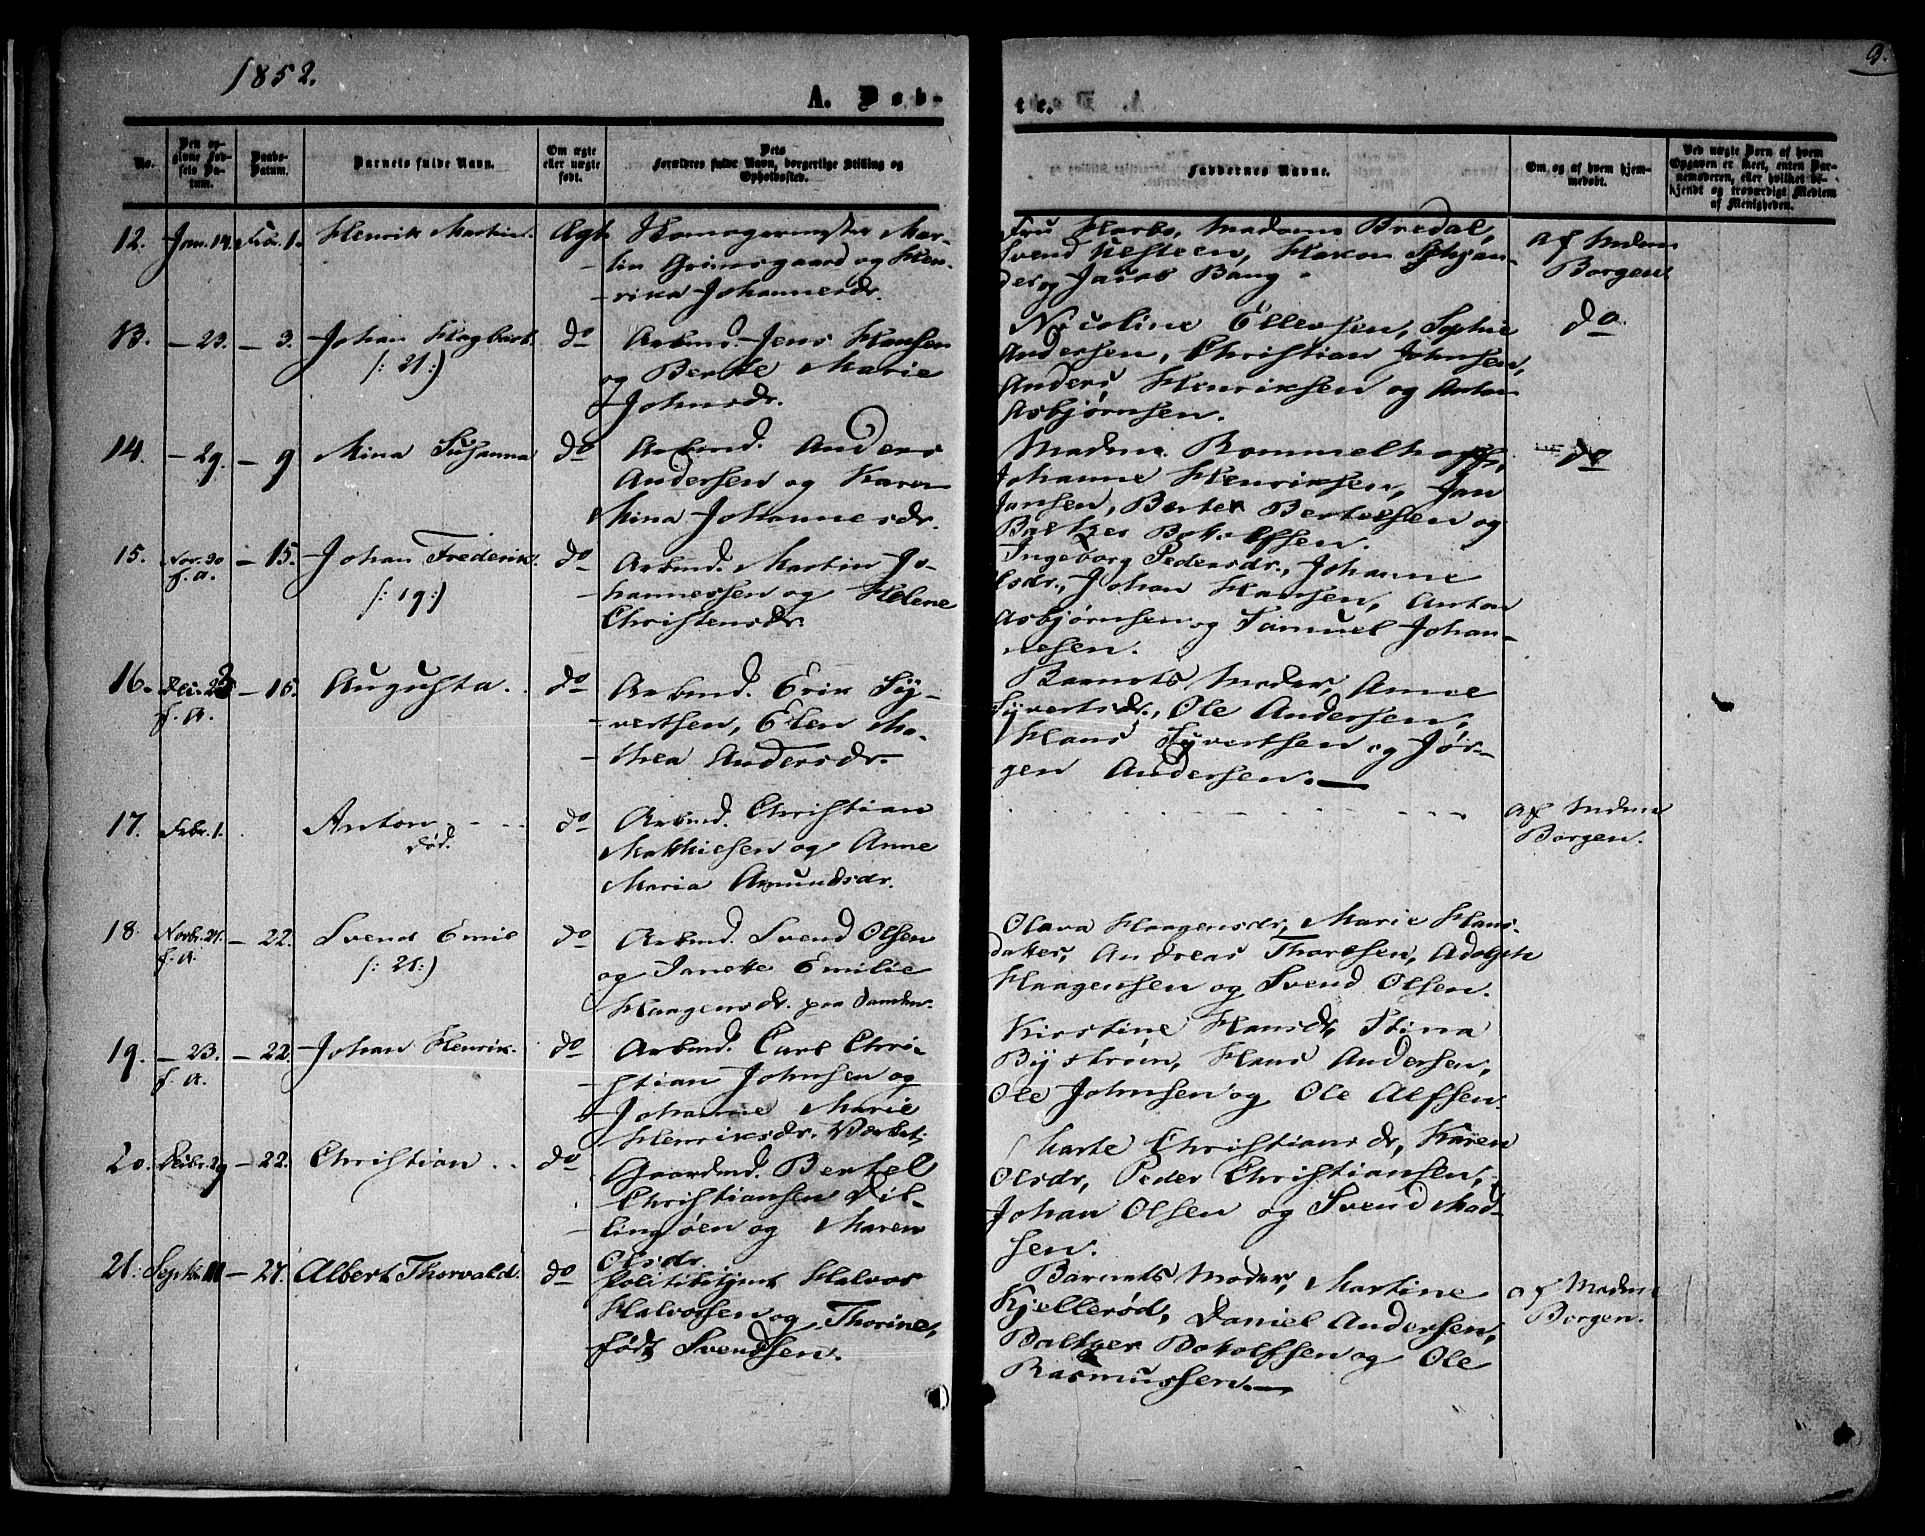 1852.
9.
A. Døb-
te.
No.
Den op-
givne Fød-
sels Da-
tum.
Daabs-
Datum.
Barnets fulde Navn.
Om ægte
eller uægte
født.
Dets
Forældres fulde Navn, borgerlige Stilling og
Opholdssted.
Faddernes Navne.
Om og af hvem hjem-
medøbt.
Ved uægte Børn af hvem
Opgaven er skeet, enten Bar-
nemoderen, eller hvilket be-
kjendt og troværdigt Medlem
af Menigheden.
12. Jan. 14. Febr. 1. Henrik Martin. Ægte Skomagermester Mar-
tin Grimsgaard og Hen-
rika Johannesdr.
Fru Harbo, Madame Bredal,
Svend Kefteen, Hakon
og Jacob Bang
af Mdm
Borgen
13. - 23. - 3. Johan Hagbart. do Arbmd. Jens Hansen
/: 21:) og Berthe Marie
Johnsdr.
Nicoline Ellevsen, Sophie
Andersen, Christian Johnsen,
Anders Henriksen og Anton
Asbjørnsen.
do
14. - 29. - 9 Mina Susanna do Arbmd. Anders
Andersen og Karen
Mina Johannesdr.
Madme. Rommelhoff,
Johanne Henriksen, Jan
Jansen, Bertel Bertelsen og
Baltzer Botolfsen.
do
15. Nov. 30 - 15. Johan Frederik. do Arbmd. Martin Jo-
f. A. /: 19:) hannessen og Helene
Christensdr.
Ingeborg Pedersdr., Johanne
Olsdr., Johan Hansen, Anton
Asbjørnsen og Samuel Johan-
nesen.
16. Dec. 23 - 15. Augusta. do Arbmd. Erik Sy-
f. A. vertsen, Elen Ma-
thea Andersdr.
Barnets Moder, Anne
Syvertsdr., Ole Andersen,
Hans Syvertsen og Jør-
gen Andersen.
17. Febr. 1. Anton do Arbmd. Christian
død. Mathiesen og Anne
Maria Amundsdr.
af Mdme
Borgen.
18. Novbr. 21. - 22. Svend Emil do Arbmd. Svend Olsen
f. A. /: 21:) og Janette Emilie
Haagensdr. paa Damken.
Olava Haagensdr., Marie Hans-
datter, Andreas Thoresen, Adolph
Haagensen og Svend Olsen.
19. - 23. - 22. Johan Henrik. do Arbmd. Carl Chri-
f. A. stian Johnsen og
Johanne Marie
Henriksdr. Værket
Kirstine Hansdr, Stina
Bystrøm, Hans Andersen,
Ole Johnsen og Ole Alfsen.
20. Decbr. 29 - 22. Christian. do Gaardmd. Bertel
Christiansen Dil-
lingøen og Maren
Olsdr.
Marte Christiansdr, Karen
Olsdr, Peder Christiansen,
Johan Olsen og Svend Mad-
sen.
21. Septbr. - 21. Albert Thorvald. do Politibetjent Halvor
Halvorsen og Thorine,
født Svendsen.
Barnets Moder, Martine
Kjellerød, Daniel Andersen,
Baltzer Botolfsen og Ole
Rasmussen.
af Madme
Borgen.